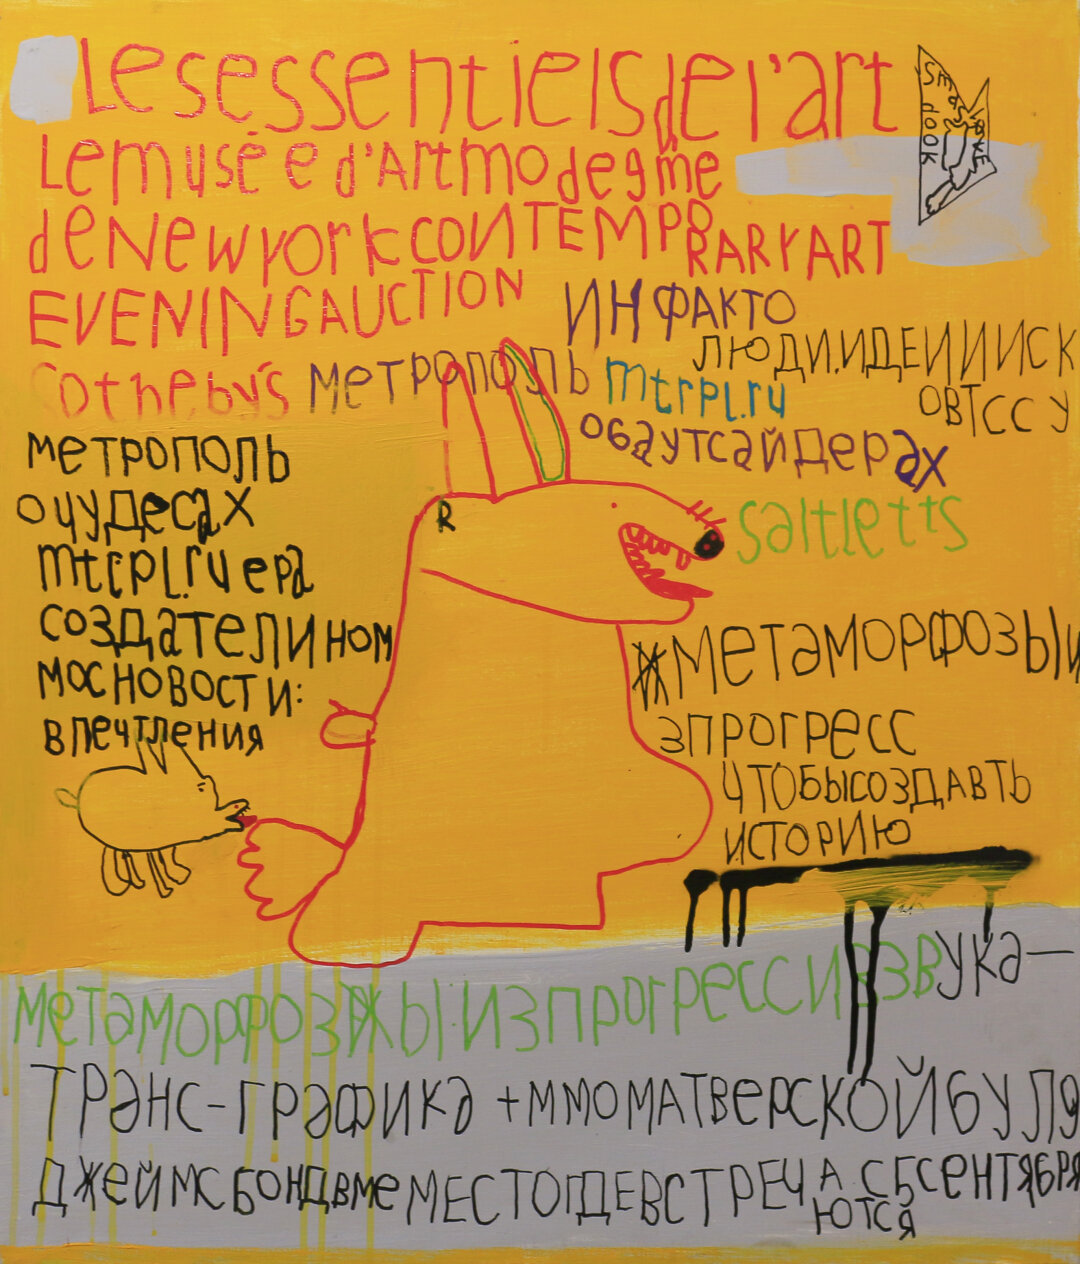 Lesessentielsdel'art
Lemusée d'Artmodegme
deNewyorkCONTEMPO
RARYART
EVENINGAUCTION
ИНФАКТО
ЛЮДИ.ИДЕИИИСК
ОВТССУ
sotheby's
МЕТРОПОЛЬ
mtrpl.ru
ОбАУТСАЙДЕРАХ
saltletts
МЕТРОПОЛЬ
ОЧУДЕСАХ
mtrpl.ru ера
СОЗДАТЕЛИНОМ
МОСНОВОСТИ:
ВПЕЧТЛЕНИЯ
R
ЖМЕТАМОРФОЗЫИ
ЗПРОГРЕСС
ЧТОБЫСОЗДАВТЬ
ИСТОРИЮ
МЕТАМОРФОЗЖЫ:ИЗПРОГРЕССИЗЗВУКА—
ТРАНС-ГРАФИКА +ММОМАТВЕРСКОЙБУЛЯ
ДЖЕЙМСБОНДВМЕМЕСТОГДЕВСТРЕЧА
ЮТСЯ
С5СЕНТЯБРЯ